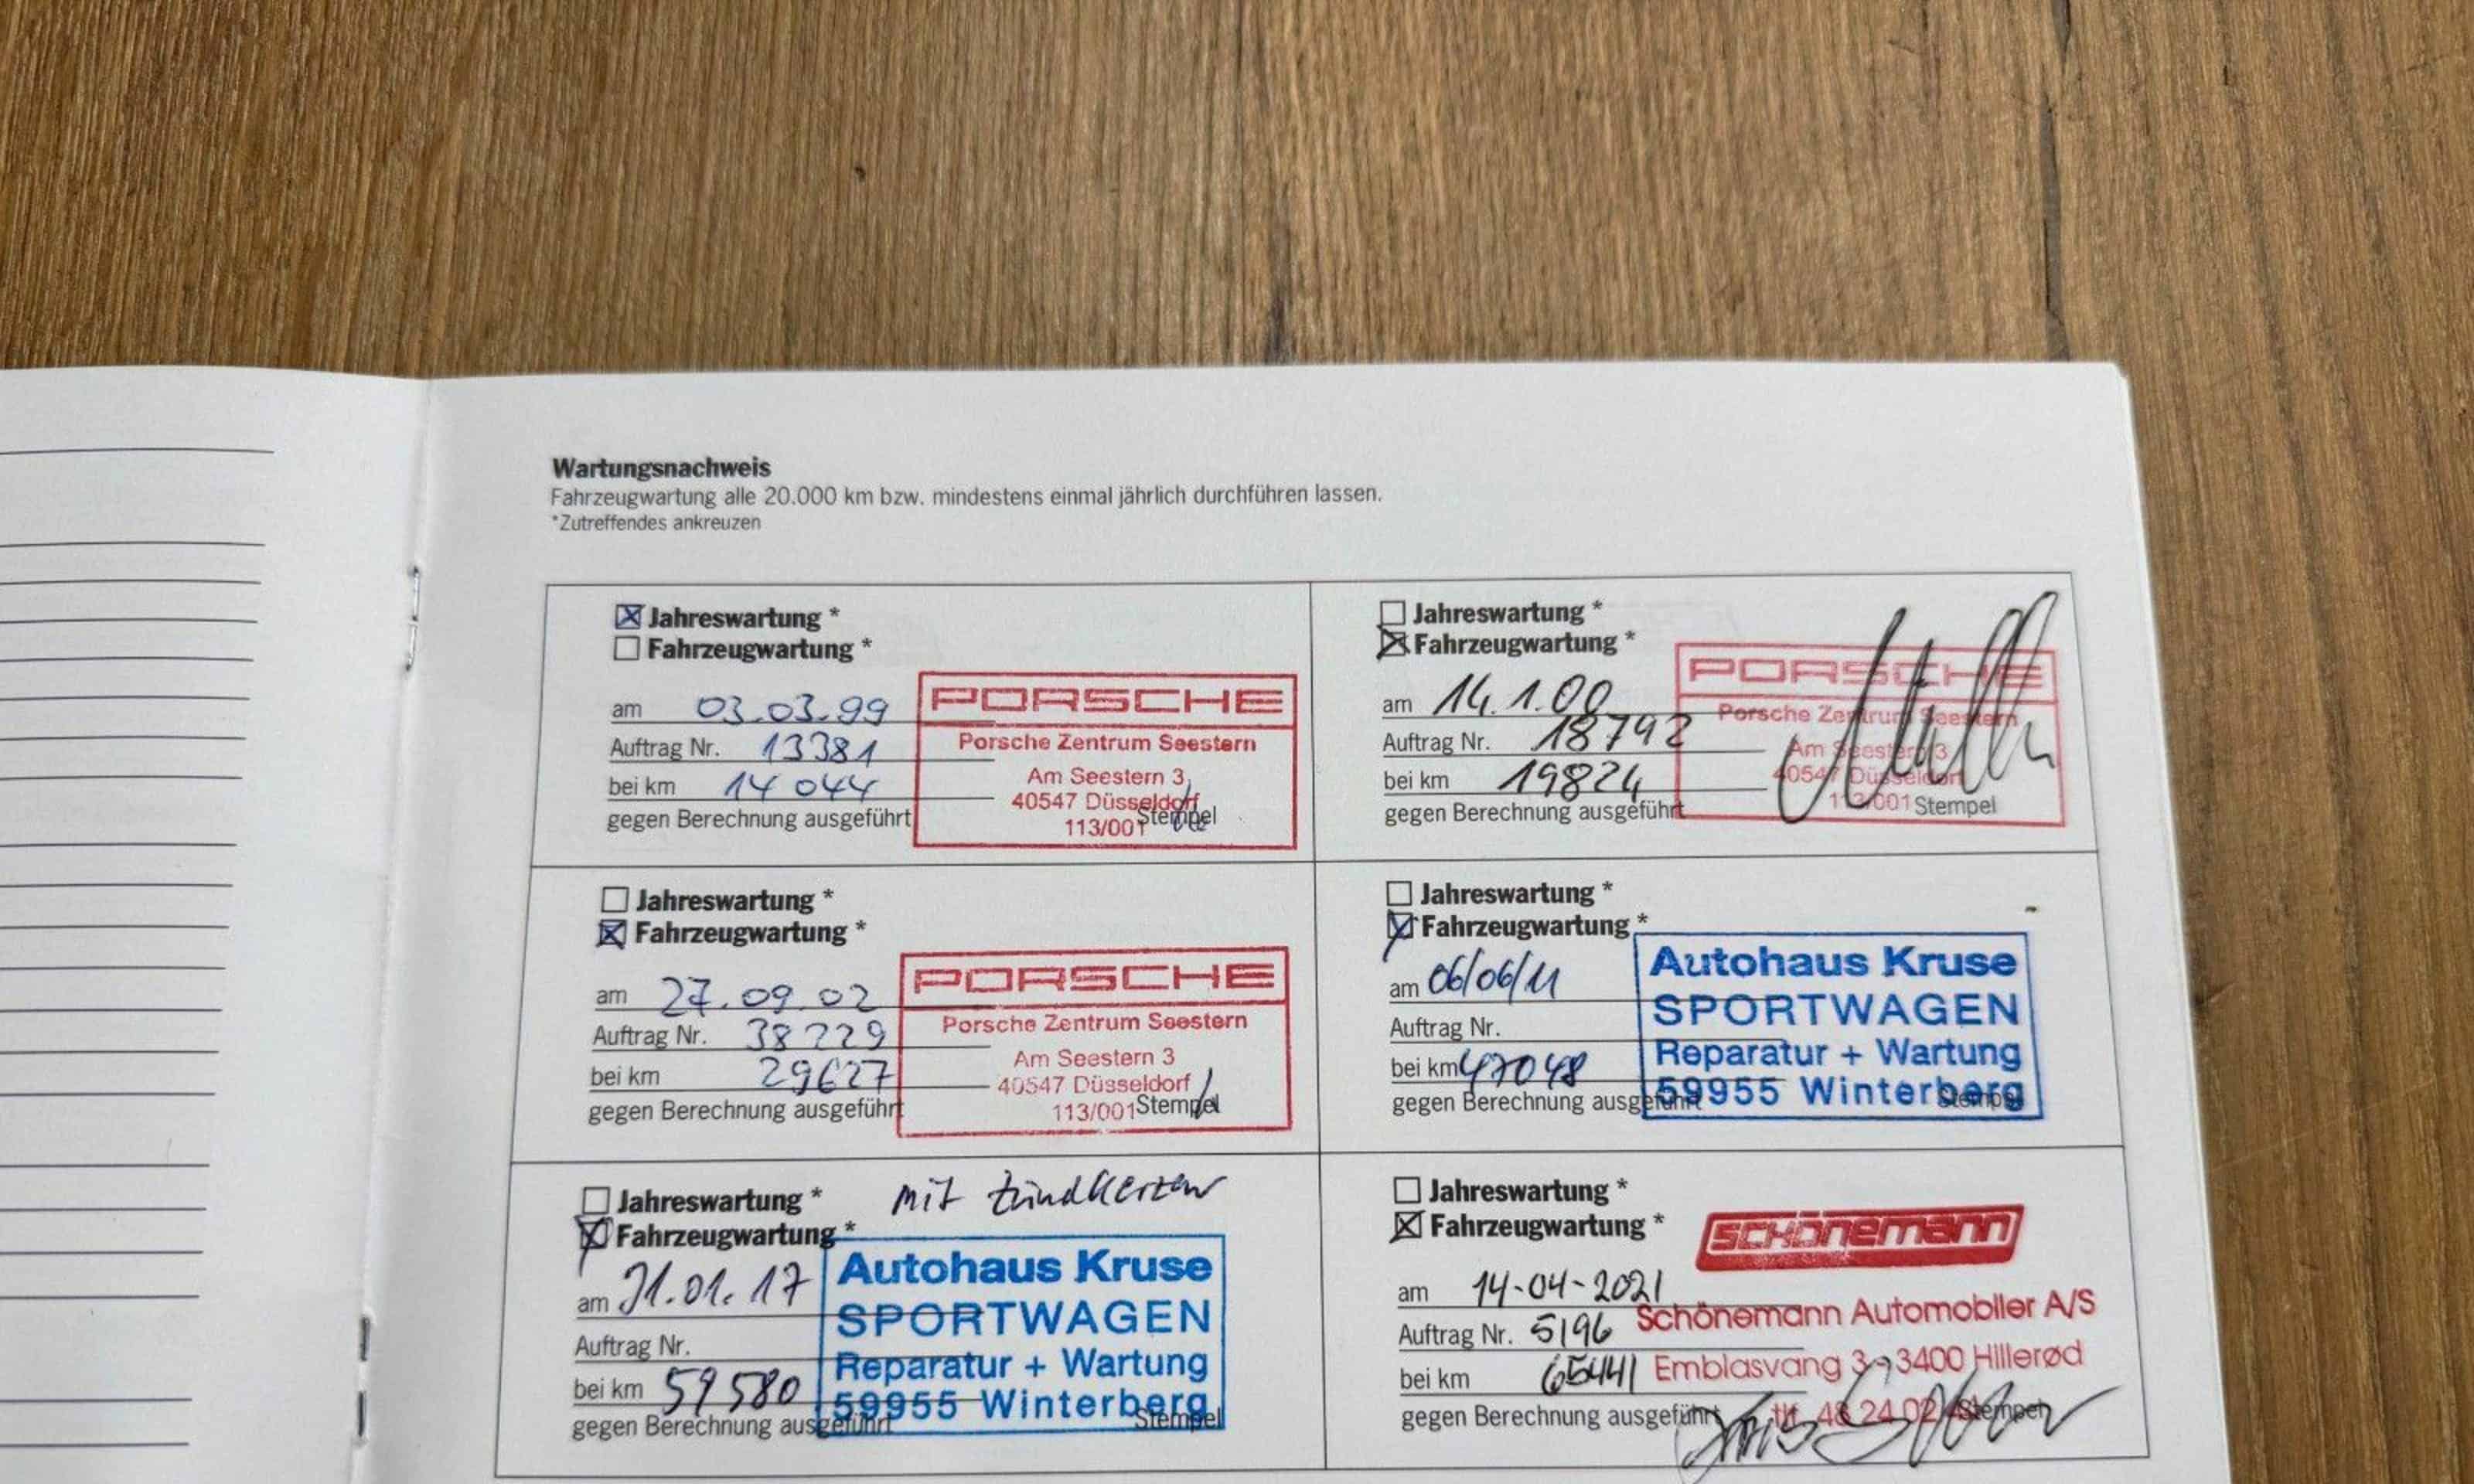 Wartungsnachweis
Fahrzeugwartung alle 20.000 km bzw. mindestens einmal jährlich durchführen lassen.
*Zutreffendes ankreuzen
Jahreswartung *
Fahrzeugwartung *
am 03.03.99
Auftrag Nr. 13381
bei km 14 044
gegen Berechnung ausgeführt
PORSCHE
Porsche Zentrum Seestern
Am Seestern 3
40547 Düsseldorf
113/001 Stempel
Jahreswartung *
Fahrzeugwartung *
am 14.1.00
Auftrag Nr. 18792
bei km 19824
gegen Berechnung ausgeführt
PORSCHE
Porsche Zentrum Seestern
Am Seestern 3
40547 Düsseldorf
113/001 Stempel
Jahreswartung *
Fahrzeugwartung *
am 27.09.02
Auftrag Nr. 38229
bei km 29627
gegen Berechnung ausgeführt
PORSCHE
Porsche Zentrum Seestern
Am Seestern 3
40547 Düsseldorf
113/001 Stempel
Jahreswartung *
Fahrzeugwartung *
am 06/06/11
Auftrag Nr.
bei km 47048
gegen Berechnung ausgeführt
Autohaus Kruse
SPORTWAGEN
Reparatur + Wartung
59955 Winterberg
Stempel
Jahreswartung *
mit Zündkerzen
Fahrzeugwartung *
am 31.01.17
Auftrag Nr.
bei km 59580
gegen Berechnung ausgeführt
Autohaus Kruse
SPORTWAGEN
Reparatur + Wartung
59955 Winterberg
Stempel
Jahreswartung *
Fahrzeugwartung *
SCHÖNEMANN
am 14-04-2021
Auftrag Nr. 5196
bei km 65441
gegen Berechnung ausgeführt
Schönemann Automobiler A/S
Emblasvang 3 - 3400 Hillerød
tlf. 48 24 02
Stempel